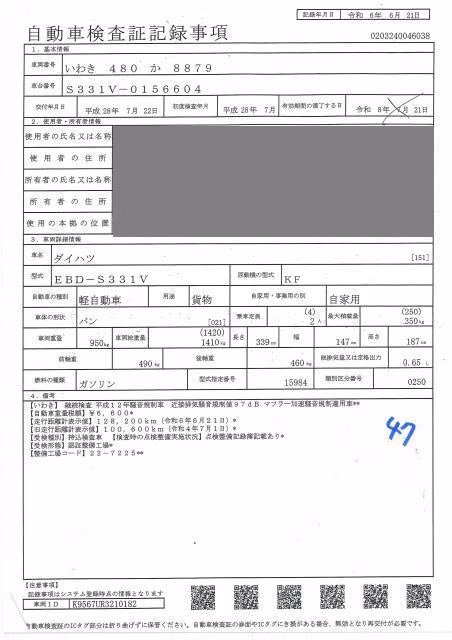 記録年月日 令和 6年 6月 21日
自動車検査証記録事項
0203240046038
1．基本情報
車両番号 いわき 480 か 8879
車台番号 S331V-0156604
交付年月日 平成 28年 7月 22日 初度検査年月 平成 28年 7月 有効期間の満了する日 令和 8年 7月 21日
2．使用者・所有者情報
使用者の氏名又は名称
使用者の住所
所有者の氏名又は名称
所有者の住所
使用の本拠の位置
3．車両詳細情報
車名 ダイハツ [151]
型式 EBD-S331V 原動機の型式 KF
自動車の種別 軽自動車 用途 貨物 自家用・事業用の別 自家用
車体の形状 バン [021] 乗車定員 (4) 2人 最大積載量 (250) 350kg
車両重量 950kg 車両総重量 (1420) 1410kg 長さ 339cm 幅 147cm 高さ 187cm
前軸重 490kg 後軸重 460kg 総排気量又は定格出力 0.65 L
燃料の種類 ガソリン 型式指定番号 15984 類別区分番号 0250
4．備考
【いわき】 継続検査 平成12年騒音規制車 近接排気騒音規制値97dB マフラー加速騒音規制適用車**
【自動車重量税額】￥6，600*
【走行距離計表示値】128，200km（令和6年6月21日）*
【旧走行距離計表示値】100，600km（令和4年7月1日）*
【受検種別】持込検査車 【検査時の点検整備実施状況】点検整備記録簿記載あり*
【受検形態】認証整備工場*
【整備工場コード】22-7225**
47
【注意事項】
記録事項はシステム登録時点の情報となります
車両ID K9567UR3210182
自動車検査証のICタグ部分は折り曲げずに保管ください。自動車検査証の券面やICタグにき損がある場合、弊効となり再交付が必要です。